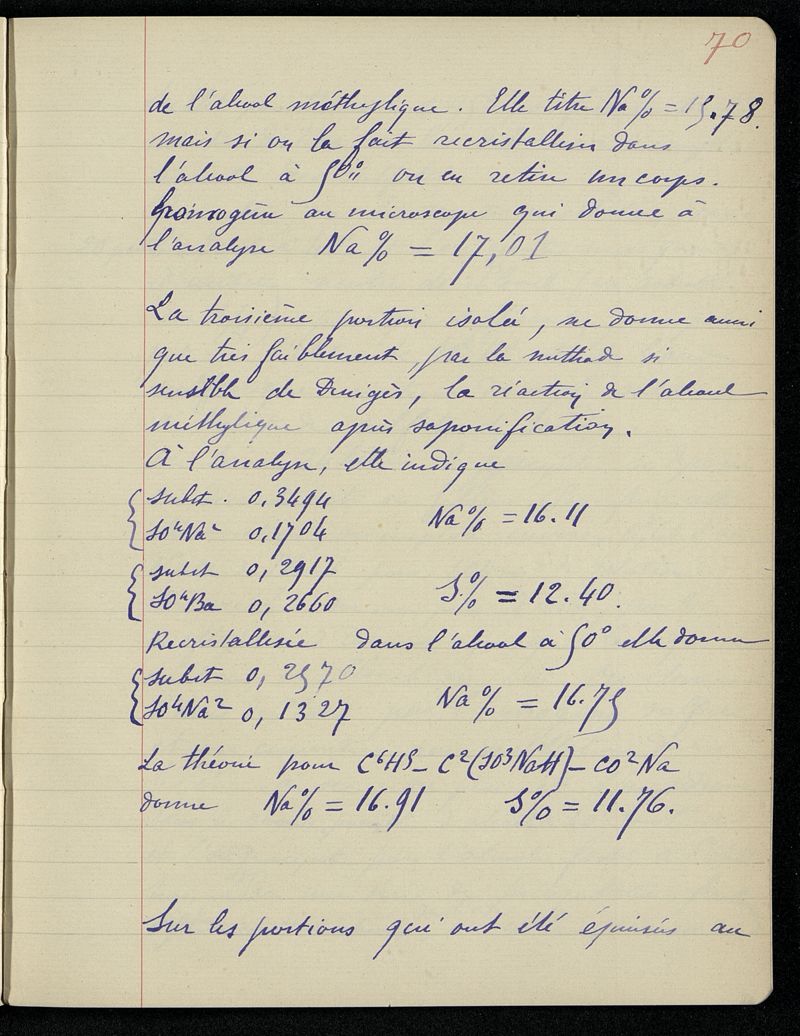 70
de l'alcool méthylique. Elle titre Na% = 15.78.
mais si on la fait recristalliser dans
l'alcool à 50° on en retire un corps.
homogène au microscope qui donne à
l'analyse Na% = 17,01
La troisième portion isolée, ne donne aussi
que très faiblement, par la méthode si
sensible de Denigès, la réaction de l'alcool
méthylique après saponification.
À l'analyse, elle indique
subst. 0,3494
SO⁴Na² 0,1704 Na% = 16.11
subst 0,2917
SO⁴Ba 0,2660 S% = 12.40.
Recristallisée dans l'alcool à 50° elle donne
subst 0,2570
SO⁴Na² 0,1327 Na% = 16.75
La théorie pour C⁶H⁵-C²(SO³NaH)-CO²Na
donne Na% = 16.91 S% = 11.76.
Sur les portions qui ont été épuisées au